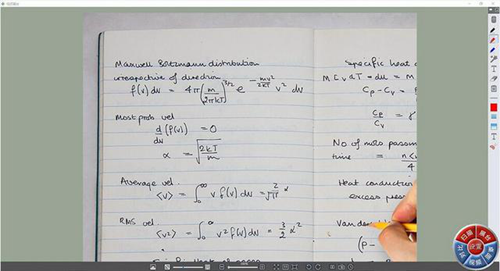 Maxwell Boltzmann distribution
irrespective of direction
f(v) dv = 4π (m/2πkT)^3/2 e^-mv²/2kT v² dv
Most prob vel
d/dv (f(v)) = 0
α = √(2kT/m)
Average vel.
<v> = ∫₀^∞ v f(v) dv = 2/√π α
RMS vel
<v²> = ∫₀^∞ v² f(v) dv = 3/2 α²
Specific heat
M Cv ΔT = du = M
Cp - Cv =
Cp/Cv = γ
No of mols passin
time = n<v>/4
Heat conduction
excess pres
Van der
(P -